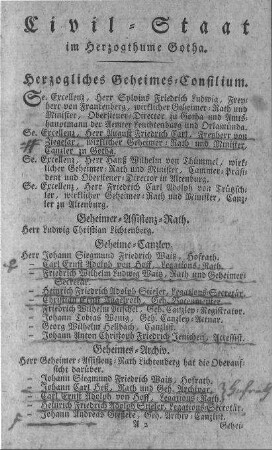 Civil-Staat
im Herzogthume Gotha.
Herzogliches Geheimes-Consilium.
Se. Excellenz, Herr Sylvius Friedrich Ludwig, Frey-
herr von Frankenberg, wirklicher Geheimer-Rath und
Minister, Obersteuer-Director zu Gotha und Amts-
hauptmann der Aemter Leuchtenburg und Orlamünda.
Se. Excellenz, Herr August Friedrich Carl, Freyherr von
Ziegesar, wirklicher Geheimer-Rath und Minister,
Canzler zu Gotha.
Se. Excellenz, Herr Hanß Wilhelm von Thümmel, wirk-
licher Geheimer-Rath und Minister, Cammer-Präsi-
dent und Obersteuer-Director zu Altenburg.
Se. Excellenz, Herr Friedrich Carl Adolph von Trützsch-
ler, wirklicher Geheimer-Rath und Minister, Canz-
ler zu Altenburg.
Geheimer-Assistenz-Rath.
Herr Ludwig Christian Lichtenberg.
Geheime-Canzley.
Herr Johann Siegmund Friedrich Waitz, Hofrath.
— Carl Ernst Adolph von Hoff, Legations-Rath.
— Friedrich Wilhelm Ludwig Waitz, Rath und Geheimer-
Secretär.
— Heinrich Friedrich Adolph Stieler, Legations-Secretär.
— Christian Ernst
— Friedrich Wilhelm Pitschel, Geh. Canzley-Registrator.
— Johann Tobias Wenig, Geh. Canzley-Actuar.
— Georg Wilhelm Hellbach, Canzlist.
— Johann Anton Christoph Friedrich Jenichen, Accessist.
Geheimes-Archiv.
Herr Geheimer-Assistenz-Rath Lichtenberg hat die Oberauf-
sicht darüber.
— Johann Siegmund Friedrich Waitz, Hofrath.
— Johann Carl Heß, Rath und Geh. Archivar.
— Carl Ernst Adolph von Hoff, Legations-Rath.
— Heinrich Friedrich Adolph Stieler, Legations-Secretär.
— Johann Andreas Geutebr, Geh. Archiv-Canzlist.
A 2 Gehei-